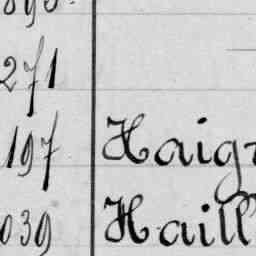 271
197 Haig
039 Haill